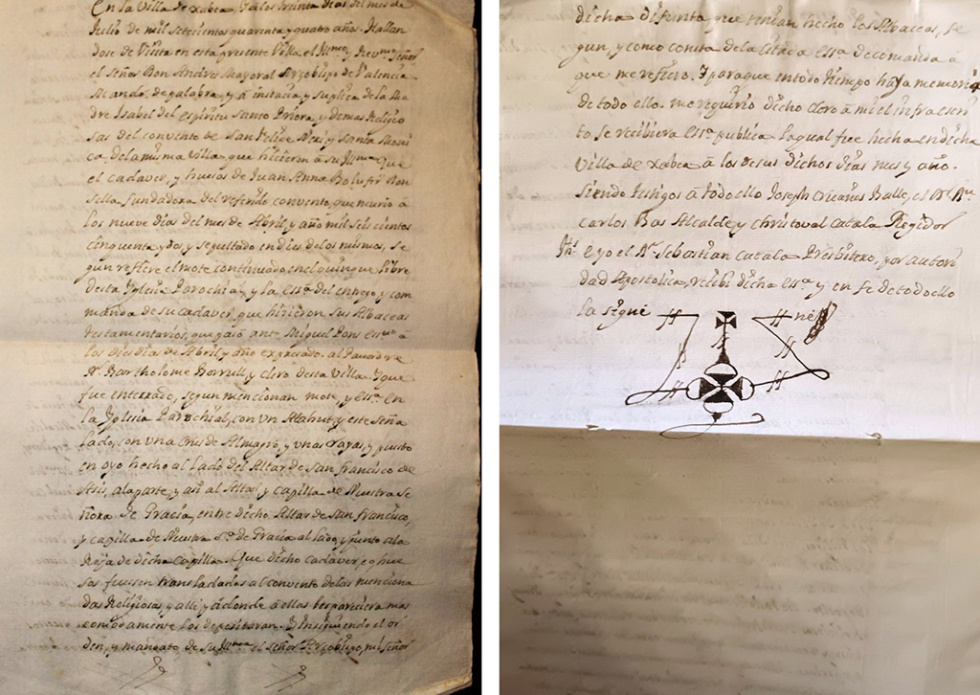 En la Villa de Xabea, a los trenta dias del mes de
Julio de mil setecientos quarenta y quatro años. Hallan
dose de Visita en esta presente Villa el Illmo. y Revmo. Señor
el Señor Don Andres Mayoral Arzobispo de Valencia
Mandó, de palabra, y a instancia, y suplica de la Ma
dre Isabel del espiritu Santo Priora, y demas Religio
sas del convento de San Felipe Neri, y Santa Monica
ca, de la misma Villa, que hicieron á su Illma. Que
el cadaver, y huesos de Juan Anna Bolufer Don
sella, fundadora del referido convento, que murió á
los nueve dias del mes de Abril, y año mil seis cientos
cinquenta y dos, y sepultado en diez de los mismos, se
gun refiere el mote continuado en el quinque libre
desta Iglesia Parochial, y la essra. del entrego, y com
manda de su cadaver, que hizieron sus Albaceas
testamentarios, que pasó ante Miguel Pons essno. á
los dies dias de Abril, y año expresado, al Panadre
Dr. Bartholome Borrull, y clero desta Villa. Y que
fue enterrado, segun mencionan mote, y essra. En
la Yglesia Parochial, con un Atahut, y este Seña
lado, con una Crus de Almagro, y unas rayas, y puesto
en oyo hecho al Lado del Altar de San francisco de
Asis, a la parte, y asi al Altar, y capilla de Nuestra Se
ñora de Gracia, entre dicho Altar de San francisco,
y capilla de Nuestra Sra. de Gracia al lado, y junto a la
Rexa de dicha capilla. Que dicho cadaver, o hue
sos fuesen transladados al convento de las menciona
das Religiosas, y alli, y á donde a ellas les pareciera mas
comodamente los depositaran. Y Insiguiendo el or
den, y mandato de su Illma. el señor Arzobispo, mi señor
dicha difunta que tenian hecho los Albaceas, se
gun, y como consta de la citada essra. de comanda á
que me refiero. Y para que en todo tiempo haya memoria
de todo ello, me requirio dicho clero á mi el infra escri
to se recibiera essra. publica la qual fue hecha en dicha
Villa de Xabea á los desus dichos dias mes y año.
Siendo testigos á todo ello Joseph Batle, el Dr.
Carlos Bas Alcalde, y Christoval Catala Regidor
E yo el Dr. Sebastian Catala Presbitero, por autori
dad Apostolica, recibi dicha essra. y en fe de todo ello
la signé